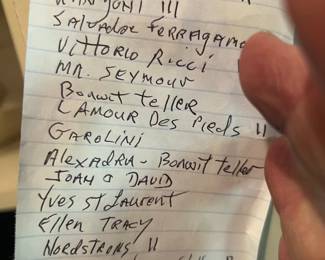 III
SALVADOR FERRAGAMO
VITTORIO RICCI
MR. SEYMOUR
BONWIT TELLER
L'AMOUR DES PIEDS II
GAROLINI
ALEXADRA - BONWIT TELLER
JOAN & DAVID
YVES ST LAURENT
ELLEN TRACY
NORDSTROMS II